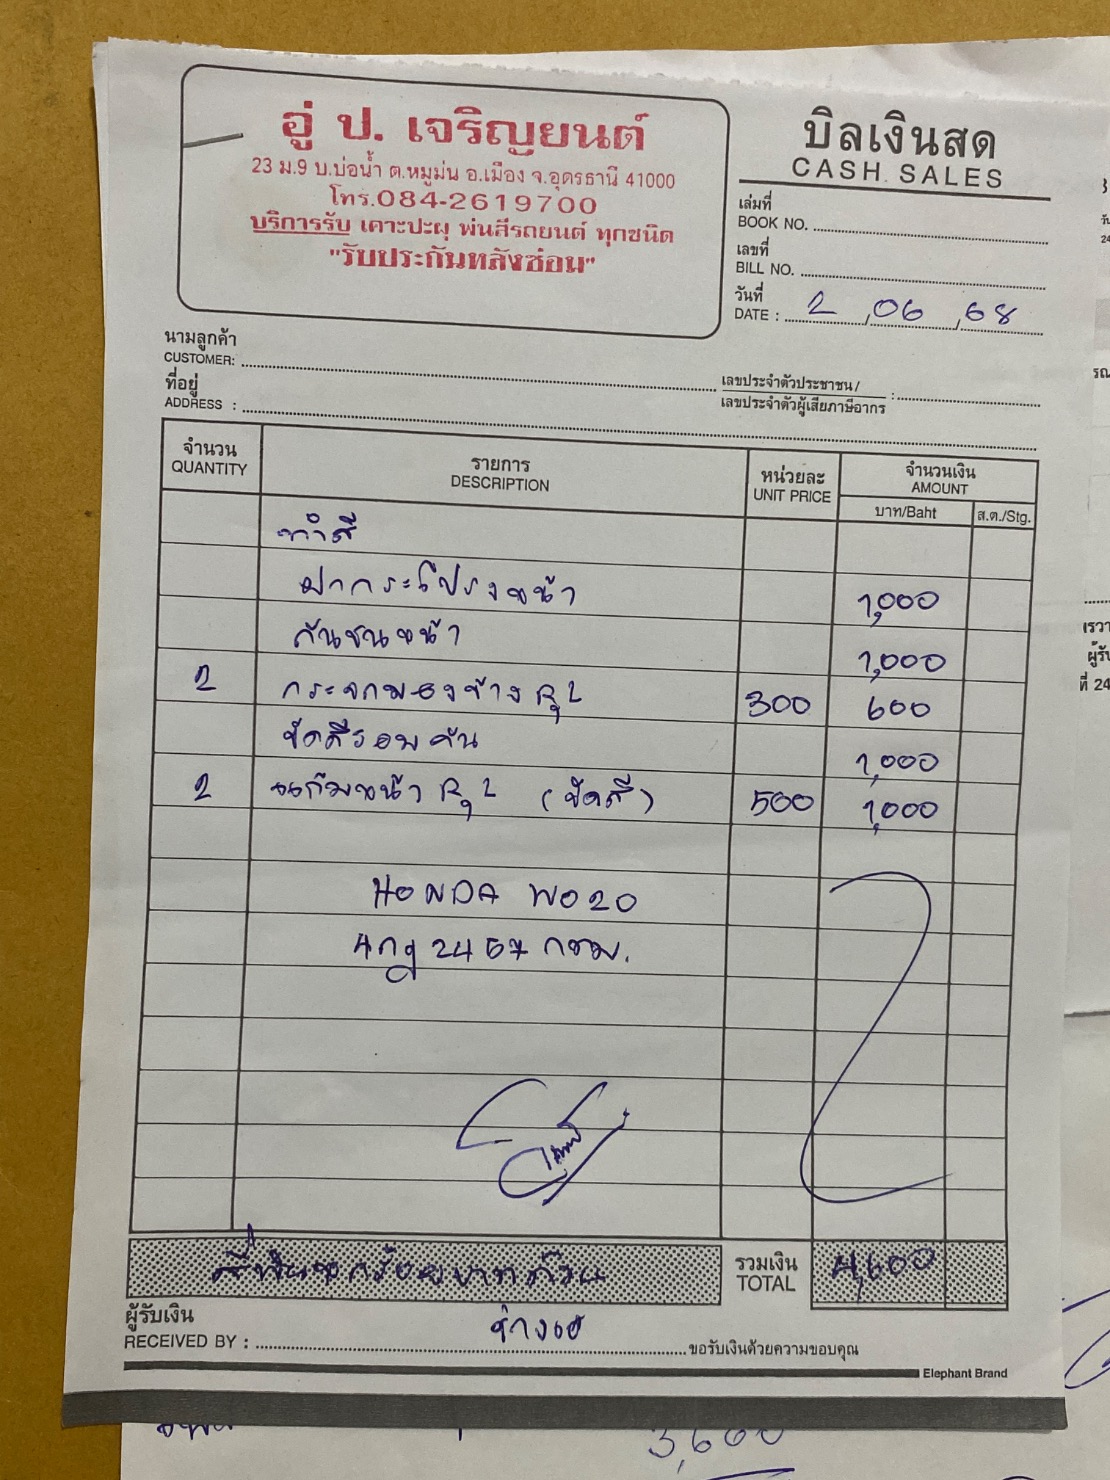 อู่ ป. เจริญยนต์
23 ม.9 บ.บ่อน้ำ ต.หมูม่น อ.เมือง จ.อุดรธานี 41000
โทร.084-2619700
บริการรับ เคาะปะผุ พ่นสีรถยนต์ ทุกชนิด
"รับประกันหลังซ่อม"
บิลเงินสด
CASH SALES
เล่มที่
BOOK NO.
เลขที่
BILL NO.
วันที่
DATE : 2 , 06 , 68
นามลูกค้า
CUSTOMER:
ที่อยู่
ADDRESS :
เลขประจำตัวประชาชน /
เลขประจำตัวผู้เสียภาษีอากร :
จำนวน รายการ หน่วยละ จำนวนเงิน
QUANTITY DESCRIPTION UNIT PRICE AMOUNT
บาท/Baht ส.ต./Stg.
ทำสี
ฝากระโปรงหน้า 1,000
กันชนหน้า 1,000
2 กระจกมองข้าง R,L 300 600
ขัดสีรอบคัน 1,000
2 แก้มหน้า R,L (ขัดสี) 500 1,000
HONDA W020
4กฎ 2457 กทม.
สี่พันหกร้อยบาทถ้วน
รวมเงิน
TOTAL 4,600
ผู้รับเงิน
RECEIVED BY : ขอรับเงินด้วยความขอบคุณ
Elephant Brand
3,600